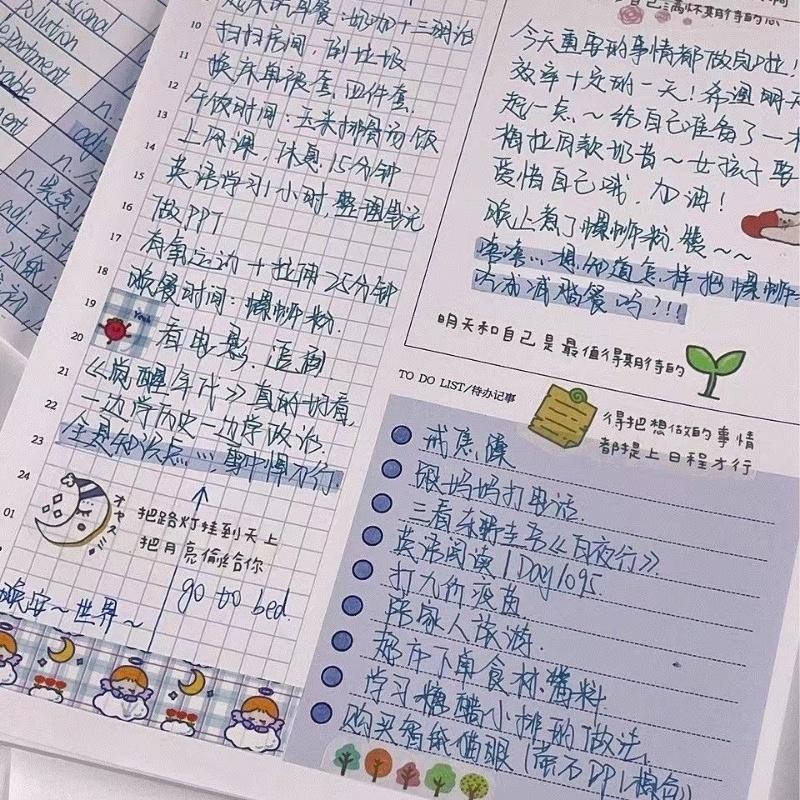 ssional
pollution
department
n.
n.
adj.
10
11
12
13
14
15
16
17
18
19
20
21
22
23
24
01
起床吃早餐:奶咖+三明治
扫扫房间,倒垃圾
换床单被套,四件套.
午饭时间:玉米排骨汤饭
上网课,休息15分钟
英语学习1小时,整理单元
做PPT
有氧运动+拉伸25分钟
晚餐时间:螺蛳粉.
Yeah
看电影.追剧
《觉醒年代》真的好看,
一边学历史一边学政治.
全是知识点…,雪中悍刀行
オヤスミ
把路灯挂到天上
把月亮偷给你
晚安~世界~
go to bed.
自己满怀期待的心
今天重要的事情都做完啦!
效率十足的一天!希望明天
起一点、~给自己准备了一
梅拉同款奶昔~女孩子要
爱惜自己哦,加油!
晚上煮了螺蛳粉.餐~~
想知道怎样把螺蛳
吃成减脂餐吗?!!!
明天和自己是最值得期待的
TO DO LIST/待办记事
得把想做的事情
都提上日程才行
戒焦躁
跟妈妈打电话.
三看东野圭吾《白夜行》
英语阅读1Day1095
打九价疫苗
陪家人旅游.
超市下单食材.酱料.
学习糖醋小排的做法